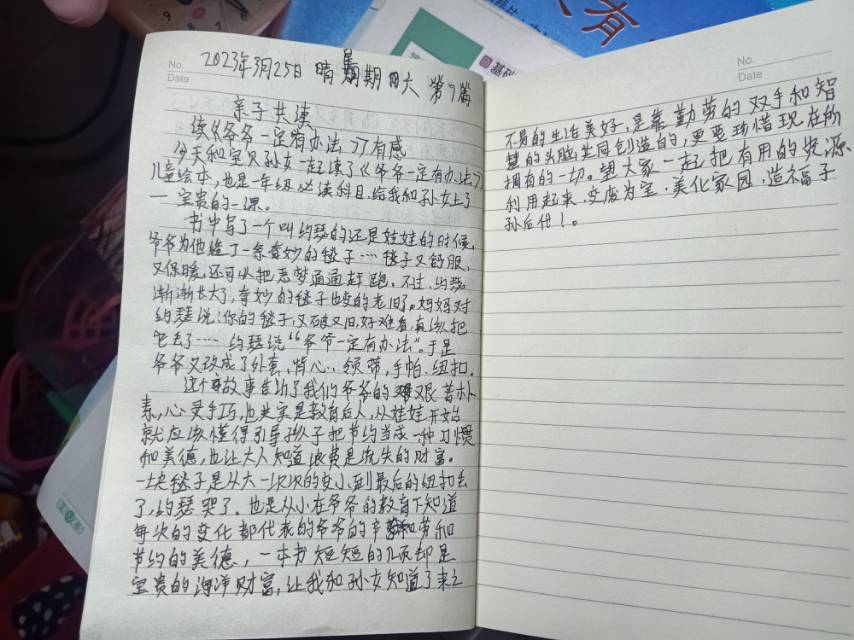 No.
Date
2023年3月25日 晴 星期六 第9篇
亲子共读
读《爷爷一定有办法》有感
今天和宝贝孙女一起读了《爷爷一定有办法》
儿童绘本,也是一年级必读科目.给我和孙女上了
一宝贵的一课。
书中写了一个叫约瑟的还是娃娃的时候,
爷爷为他缝了一条奇妙的毯子…毯子又舒服,
又保暖,还可以把恶梦通通赶跑,不过,约瑟
渐渐长大了,奇妙的毯子也变的老旧了。妈妈对
约瑟说:你的毯子,又破又旧,好难看,真该把
它丢了……约瑟说“爷爷一定有办法”。于是
爷爷又改成了外套、背心、领带,手帕.纽扣.
这个故事告诉了我们爷爷的艰苦朴
素,心灵手巧,也其实是教育后人,从娃娃开始
就应该懂得引导孩子把节约当成一种习惯
和美德,也让大人知道浪费是流失的财富。
一块毯子是从大一次次的变小,到最后的纽扣丢
了,约瑟哭了.也是从小在爷爷的教育下知道
每次的变化都代表的爷爷的辛劳和
节约的美德,一本书短短的几页却是
宝贵的海洋财富,让我和孙女知道了来之
No.
Date
不易的生活美好,是靠勤劳的双手和智
慧的头脑共同创造的,更要珍惜现在所
拥有的一切。望大家一起把有用的资源
利用起来.变废为宝.美化家园,造福子
孙后代!。
有
基础